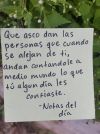 Que asco dan las
personas que cuando
se alejan de ti,
andan contandole a
medio mundo lo que
tú algun dia les
confiaste.
-Notas del
dia